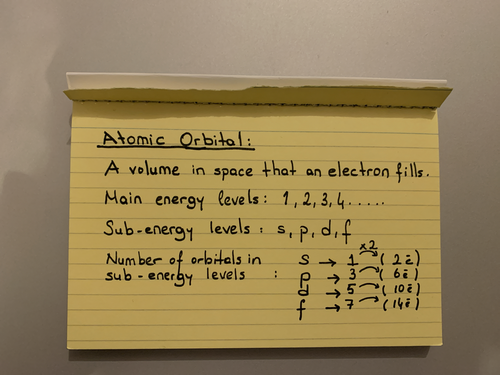 Atomic Orbital:
A volume in space that an electron fills.
Main energy levels: 1, 2, 3, 4.....
Sub-energy levels : s, p, d, f
Number of orbitals in sub-energy levels :
×2
s → 1 (2ē)
p → 3 (6ē)
d → 5 (10ē)
f → 7 (14ē)